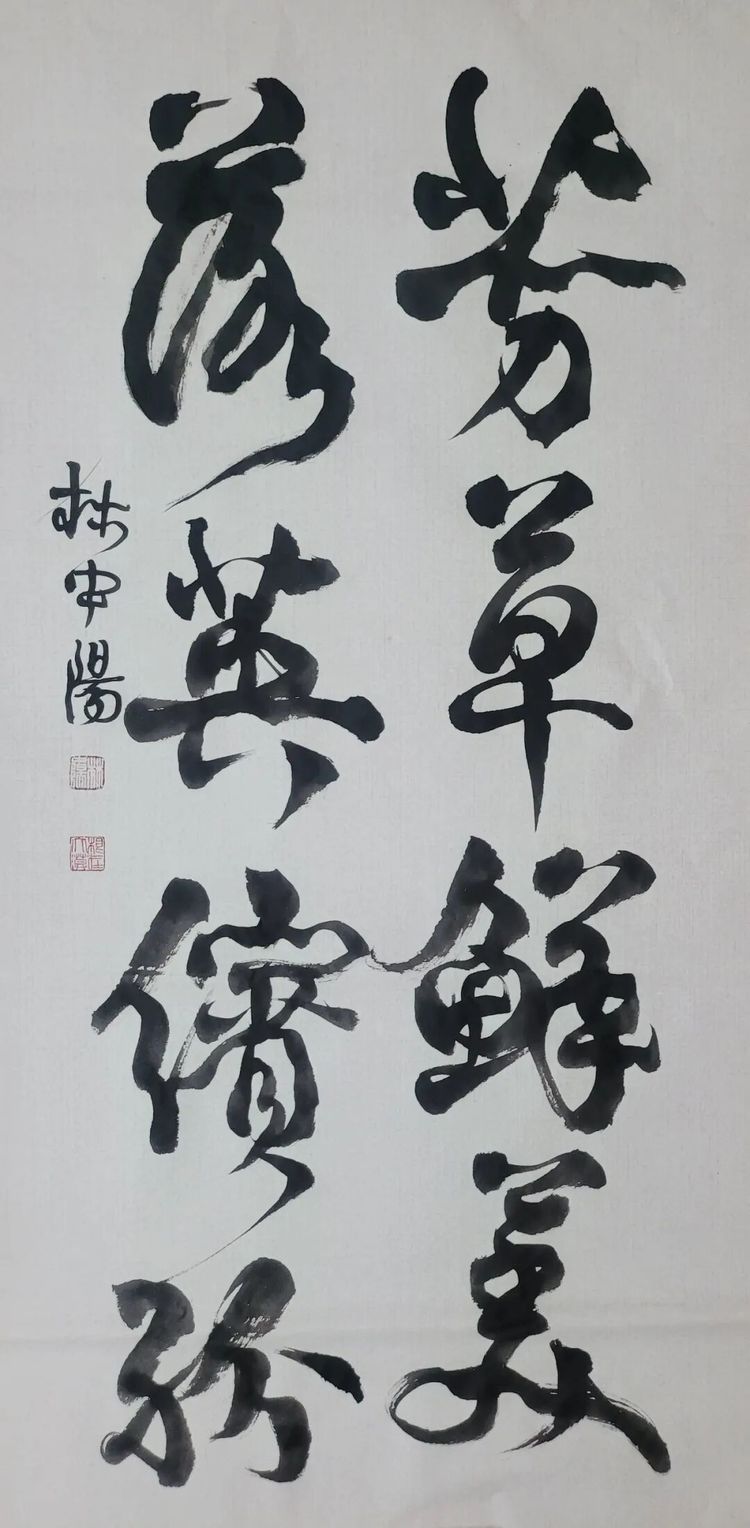 芳草鮮美
落英繽紛
林申陽